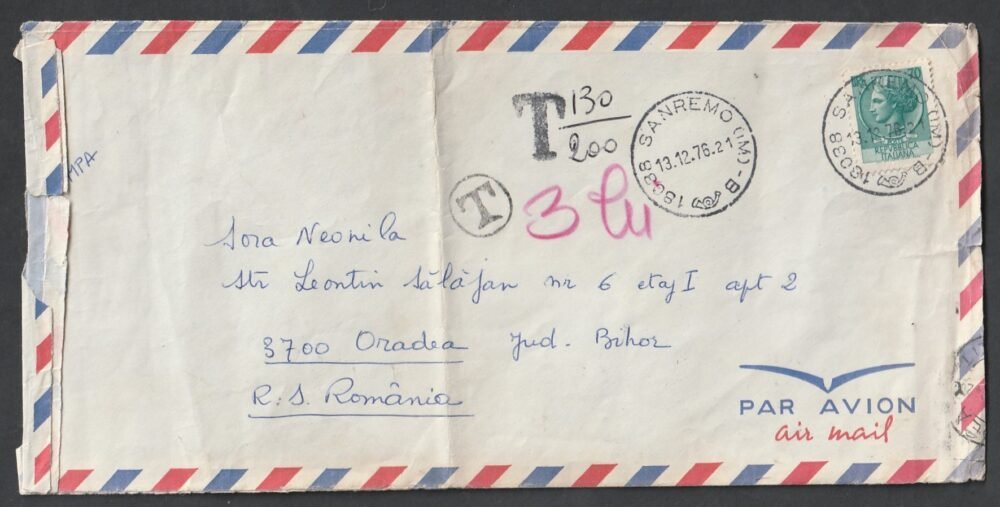 T 130
200
SANREMO (IM) - B
13.12.76.21
18038
70
REPUBBLICA
ITALIANA
SANREMO (IM) - B
13.12.76.21
18038
MPA
T
3 lei
Sora Neonila
str Leontin Sălăjan nr 6 etaj I apt 2
3700 Oradea Jud. Bihor
R. S. România
PAR AVION
air mail